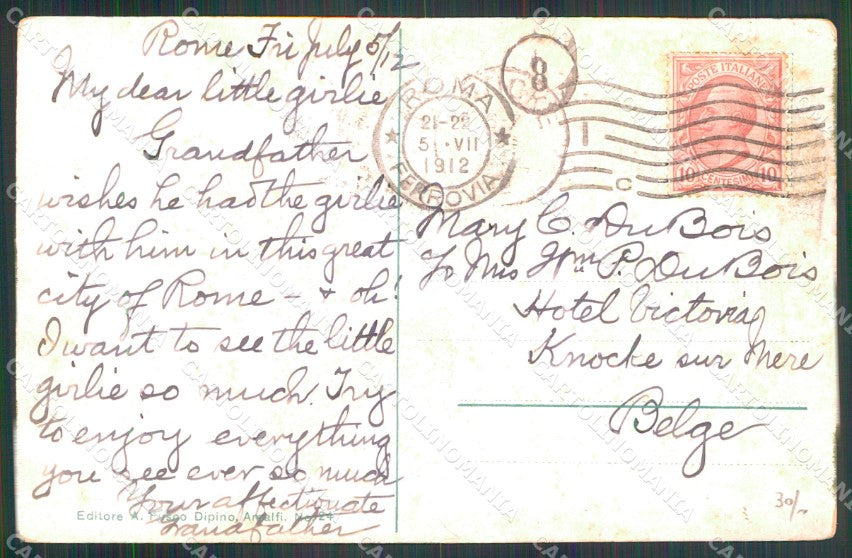 Rome Fri July 5/12
My dear little girlie
Grandfather
wishes he had the girlie
with him in this great
city of Rome - & oh!
I want to see the little
girlie so much. Try
to enjoy everything
you see ever so much
Your affectionate
Grandfather
Editore A. Fusco Dipino, Amalfi. No. 24
ROMA
21-22
5 . VII
1912
FERROVIA
8
POSTE ITALIANE
10 CENTESIMI 10
C
Mary C. DuBois
To Mrs Wm P. DuBois
Hotel Victoria
Knocke sur Mere
Belge
30/-
CARTOLINOMANIA